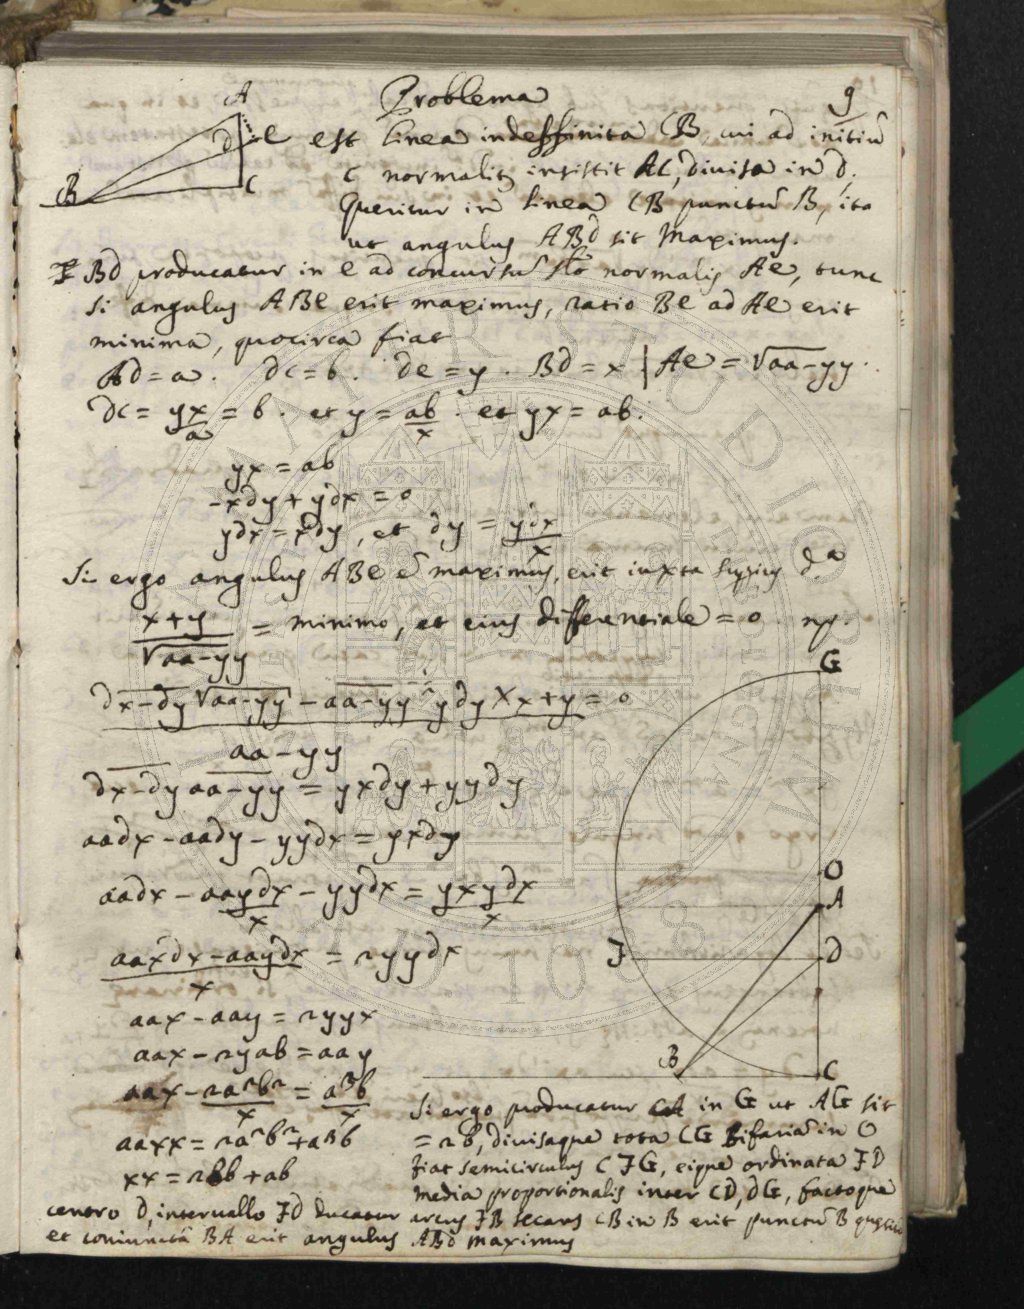 Problema
9
est linea indeffinita CB, cui ad initiũ
C normalit; insistit AC, divisa in d.
Queritur in linea CB punctũ B, ita
ut angulus ABd sit Maximus.
Bd producatur in e ad concursũ normalis Ae, tunc
si angulus ABe erit maximus, ratio Be ad Ae erit
minima, quocirca fiat
Ad = a. dc = b. de = y. Bd = x | Ae = √aa-yy.
dc = yx/a = b. et y = ab/x. et yx = ab.
yx = ab
-xdy + ydx = 0
ydx = xdy, et dy = ydx/x
Si ergo angulus ABe ẽ maximus, erit iuxta d.a
x+y/√aa-yy = minimo, et eius differentiale = 0. np.
dx-dy √aa-yy - aa-yy ydy × x+y = 0
aa-yy
dx-dy aa-yy = yxdy + yydy
aadx - aady - yydx = yxdy
aadx - aaydx/x - yydx = yxydx/x
aaxdx - aaydx/x = 2yydx
aax - aay = 2yyx
aax - 2yab = aay
aax - 2a²b²/x = a³b/x
aaxx = 2a²b² + a³b
xx = 2bb + ab
A
d
e
B
C
G
O
A
F
D
B
C
Si ergo producatur CA in G ut AG sit
= 2b, divisaque tota CG bifariã in O
fiat semicirculus CFG, eique ordinata FD
media proportionalis inter CD, dG, factoque
centro D, intervallo FD ducatur arcus FB secans CB in B erit punctũ B
et coniunctã BA erit angulus ABd maximus